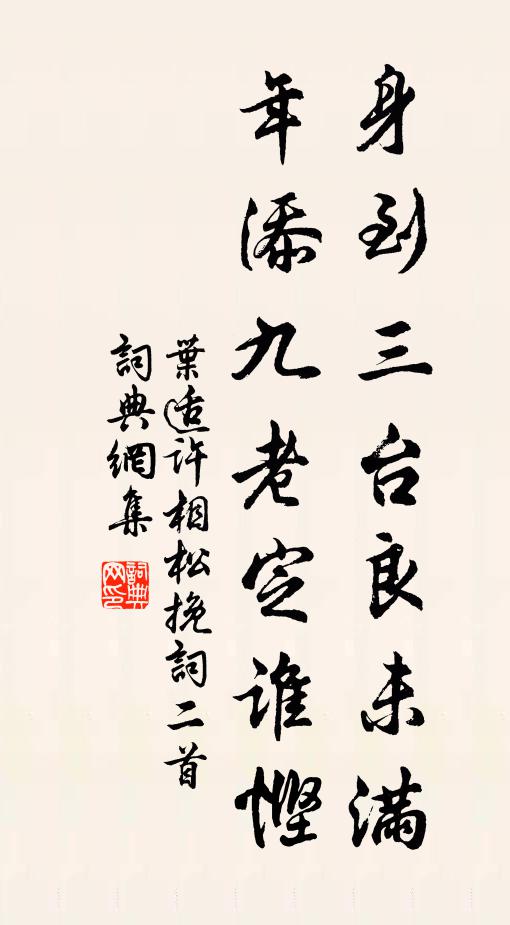 身到三台良未滿
年添九老定誰慳
葉適許相松挽詞二首
詞典網集
詞典网印